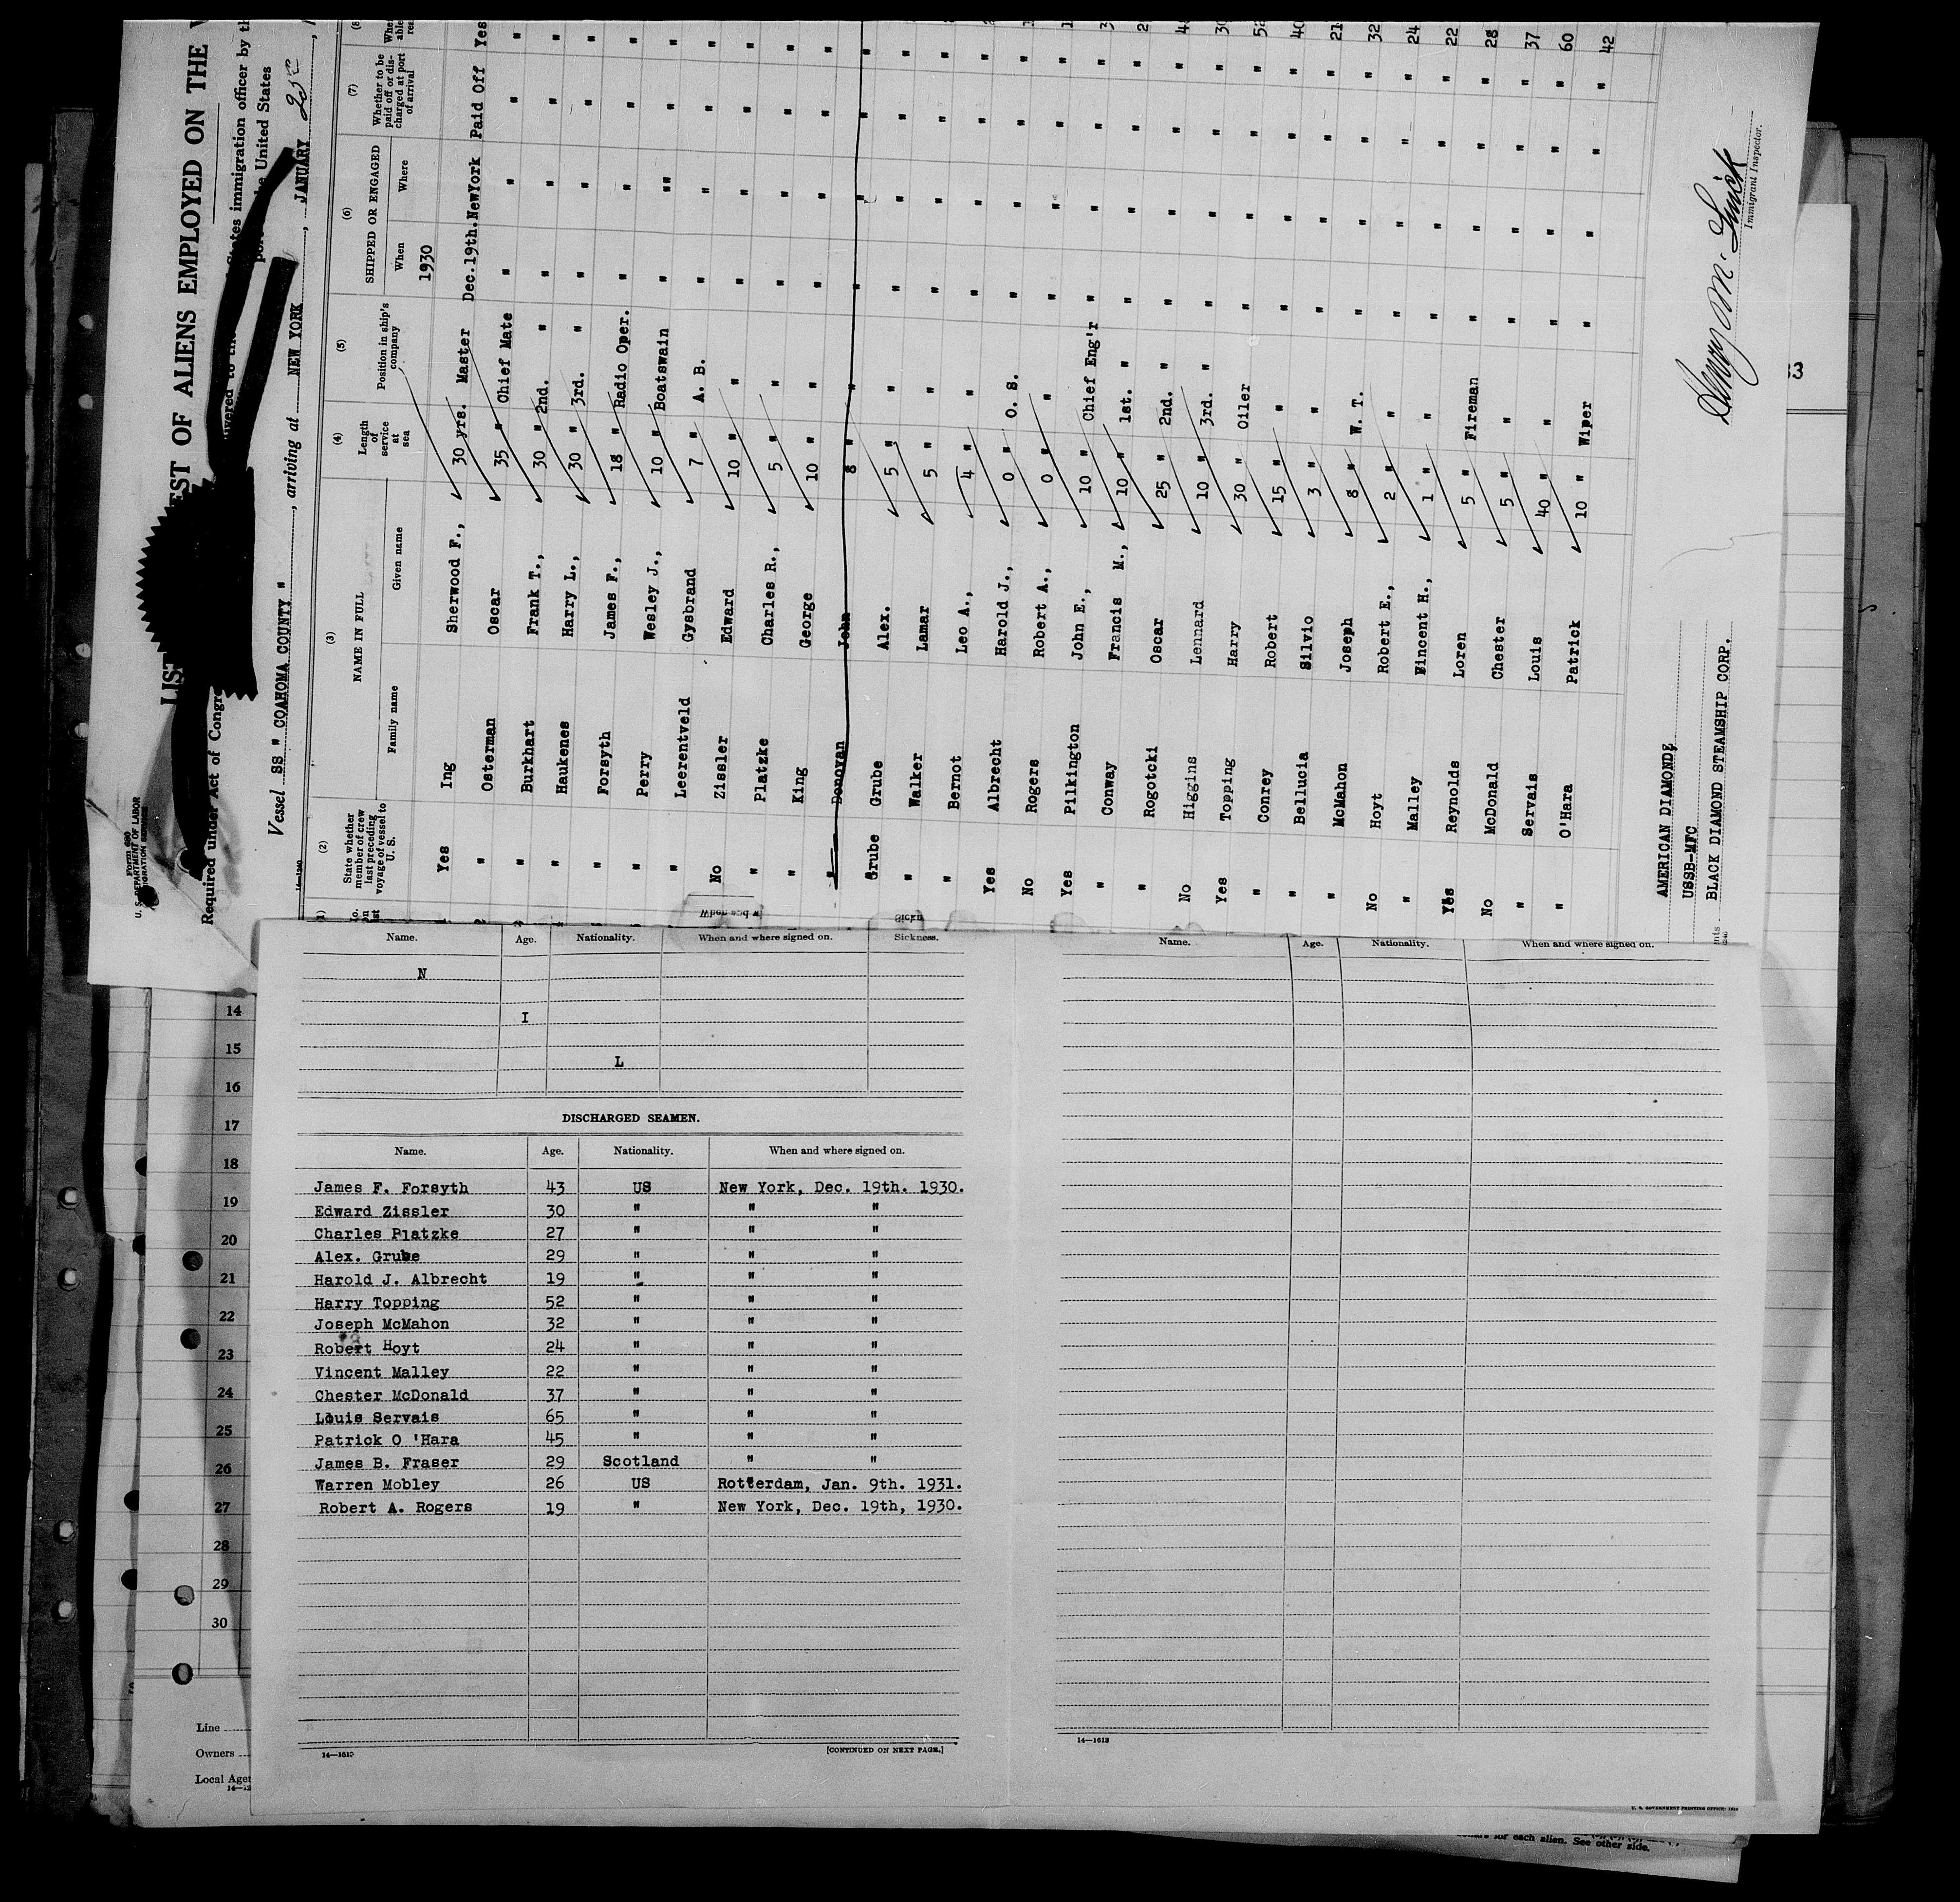 Form 680
U. S. DEPARTMENT OF LABOR
IMMIGRATION SERVICE
LIST EST OF ALIENS EMPLOYED ON THE
Required under Act of Congre
ivered to the States immigration officer by th
United States
Vessel SS " COAHOMA COUNTY " , arriving at NEW YORK , JANUARY 25th ,
(2) (3) (4) (5) (6) (7)
State whether member of crew last preceding voyage of vessel to U. S.
NAME IN FULL
Family name Given name
Length of service at sea
Position in ship's company
SHIPPED OR ENGAGED
When Where
Whether to be paid off or discharged at port of arrival
1930
Yes Ing Sherwood F., 30 yrs. Master Dec.19th. NewYork Paid Off Yes
" Osterman Oscar 35 " Chief Mate " " " "
" Burkhart Frank T., 30 " 2nd. " " " " "
" Haukenes Harry L., 30 " 3rd. " " " " "
" Forsyth James F., 18 " Radio Oper. " " " "
" Perry Wesley J., 10 " Boatswain " " " "
" Leerentveld Gysbrand 7 " A. B. " " " "
No Zissler Edward 10 " " " " " "
" Platzke Charles R., 5 " " " " " "
" King George 10 " " " " " "
" Donovan John 8 " " " " " "
Grube Grube Alex. 5 " " " " " "
" Walker Lamar 5 " " " " " "
" Bernot Leo A., 4 " " " " " "
Yes Albrecht Harold J., 0 " O. S. " " "
No Rogers Robert A., 0 " " " " "
Yes Pilkington John E., 10 " Chief Eng'r " " "
" Conway Francis M., 10 " 1st. " " " "
" Rogotcki Oscar 25 " 2nd. " " " "
No Higgins Lennard 10 " 3rd. " " " "
Yes Topping Harry 30 " Oiler " " " " 52
" Conrey Robert 15 " " " " " " 40
" Bellucia Silvio 3 " " " " " " 21
" McMahon Joseph 8 " W. T. " " " " 32
No Hoyt Robert E., 2 " " " " " " 24
" Malley Vincent H., 1 " " " " " " 22
Yes Reynolds Loren 5 " Fireman " " " " 28
No McDonald Chester 5 " " " " " " 37
" Servais Louis 40 " " " " " " 60
" O'Hara Patrick 10 " Wiper " " " " 42
AMERICAN DIAMOND
USSB-MFC
BLACK DIAMOND STEAMSHIP CORP.
Immigrant Inspector.
Name. Age. Nationality. When and where signed on. Sickness.
N
I
L
DISCHARGED SEAMEN.
Name. Age. Nationality. When and where signed on.
James F. Forsyth 43 US New York, Dec. 19th. 1930.
Edward Zissler 30 " " "
Charles Platzke 27 " " "
Alex. Grube 29 " " "
Harold J. Albrecht 19 " " "
Harry Topping 52 " " "
Joseph McMahon 32 " " "
Robert Hoyt 24 " " "
Vincent Malley 22 " " "
Chester McDonald 37 " " "
Louis Servais 65 " " "
Patrick O 'Hara 45 " " "
James B. Fraser 29 Scotland " "
Warren Mobley 26 US Rotterdam, Jan. 9th. 1931.
Robert A. Rogers 19 " New York, Dec. 19th, 1930.
[CONTINUED ON NEXT PAGE.]
Name. Age. Nationality. When and where signed on.
14—1613
14
15
16
17
18
19
20
21
22
23
24
25
26
27
28
29
30
Line
Owners
Local Agen
U. S. GOVERNMENT PRINTING OFFICE
for each alien. See other side.